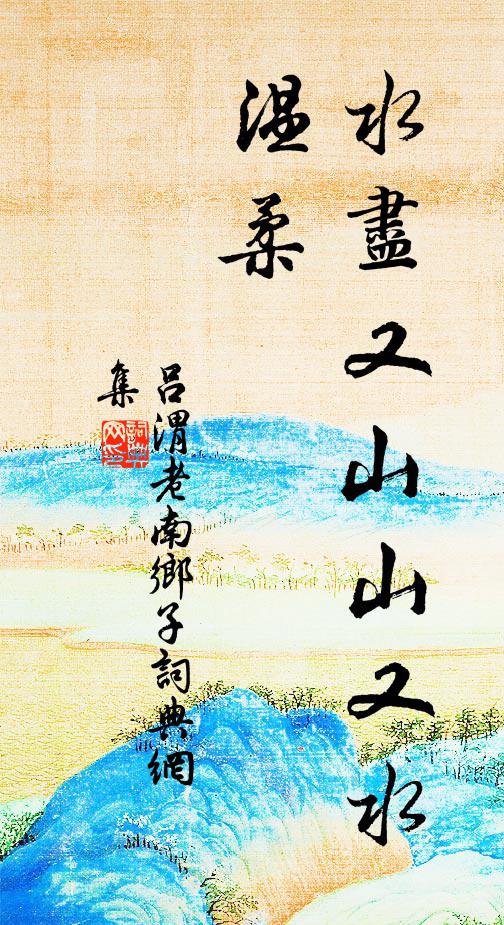 水盡又山山又水
温柔
吕渭老南鄉子詞典網
集